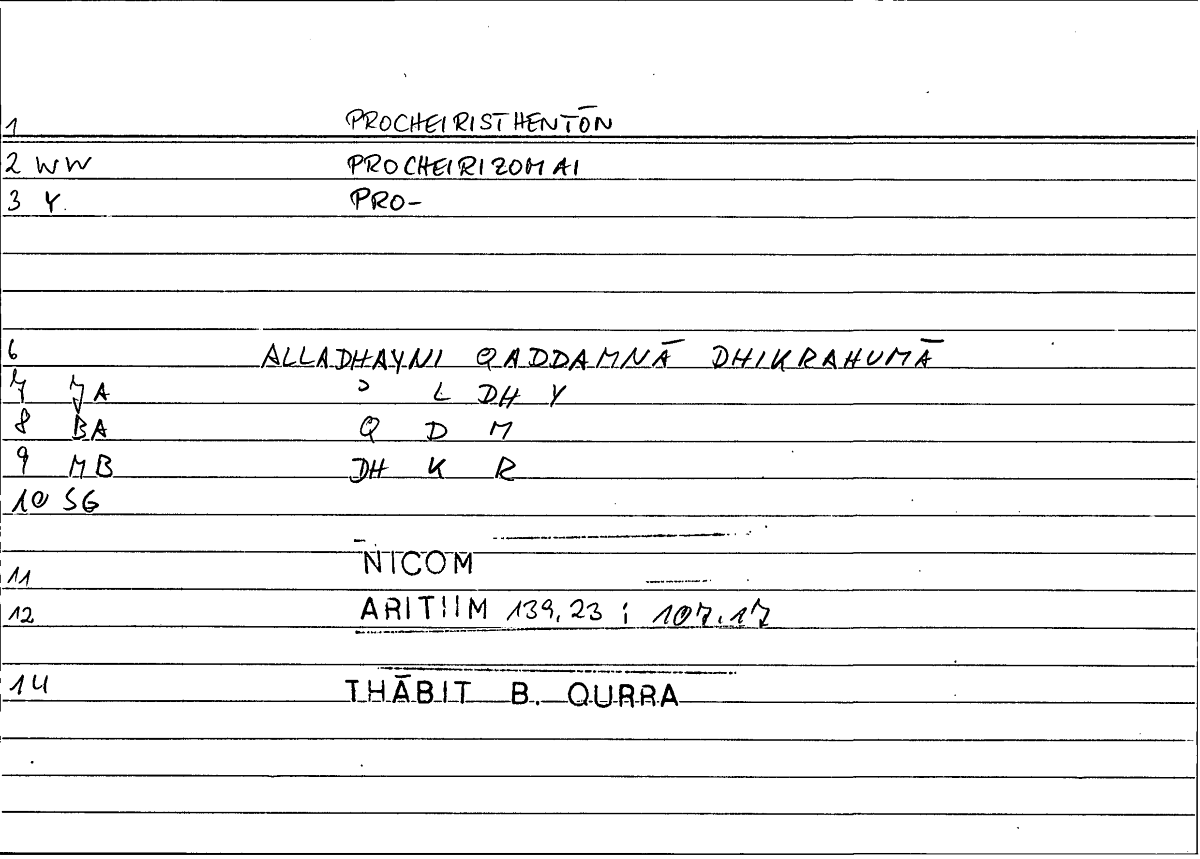 1 PROCHEIRISTHENTŌN
2 WW PROCHEIRIZOMAI
3 Y. PRO-
6 ALLADHAYNI QADDAMNĀ DHIKRAHUMĀ
7 JA ʾ L DH Y
8 BA Q D M
9 MB DH K R
10 SG
11 NICOM
12 ARITHM 139,23 ; 107.17
14 THĀBIT B. QURRA